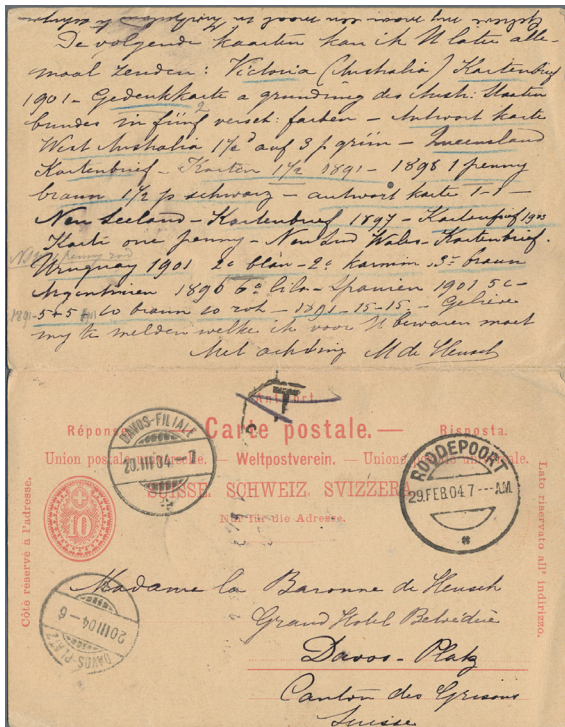 De volgende kaarten kan ik U later alle-
maal zenden: Victoria (Australia) Kartenbrief
1901 - Gedenkkarte a grundung des Austr. Staaten
bundes in fünf versch: farben - Antwort karte
West Australia 1½d auf 3 p grün - Queensland
Kartenbrief - Karten 1½ 1891 - 1898 1 penny
braun 1½ p schwarz - antwort karte 1-1 -
New Seeland - Kartenbrief 1897 - Kartenbrief 1903
Karte one penny - New Sud Wales - Kartenbrief.
penny rod
Uruguay 1901 2c blau - 2c karmin 3c braun
Argentinien 1896 6c lila - Spanien 1901 5c -
1891 - 5+5 10 braun 10 roth - 1891 - 15-15 - Gelieve
my te melden welke ik voor U bewaren moet
Met achting M de Heusch
T
Antwort.
Réponse. Carte postale. — Risposta.
Union postale universelle. — Weltpostverein. — Unione postale universale.
SUISSE. SCHWEIZ. SVIZZERA.
Nur für die Adresse.
Côté reservé à l'adresse.
Lato riservato all' indirizzo.
10
DAVOS-FILIALE
20.III 04.-7
ROODEPOORT
29.FEB 04 7 - - - AM
DAVOS-PLATZ
20III04-6
Madame la Baronne de Heusch
Grand Hotel Belvédère
Davos-Platz
Canton des Grisons
Suisse